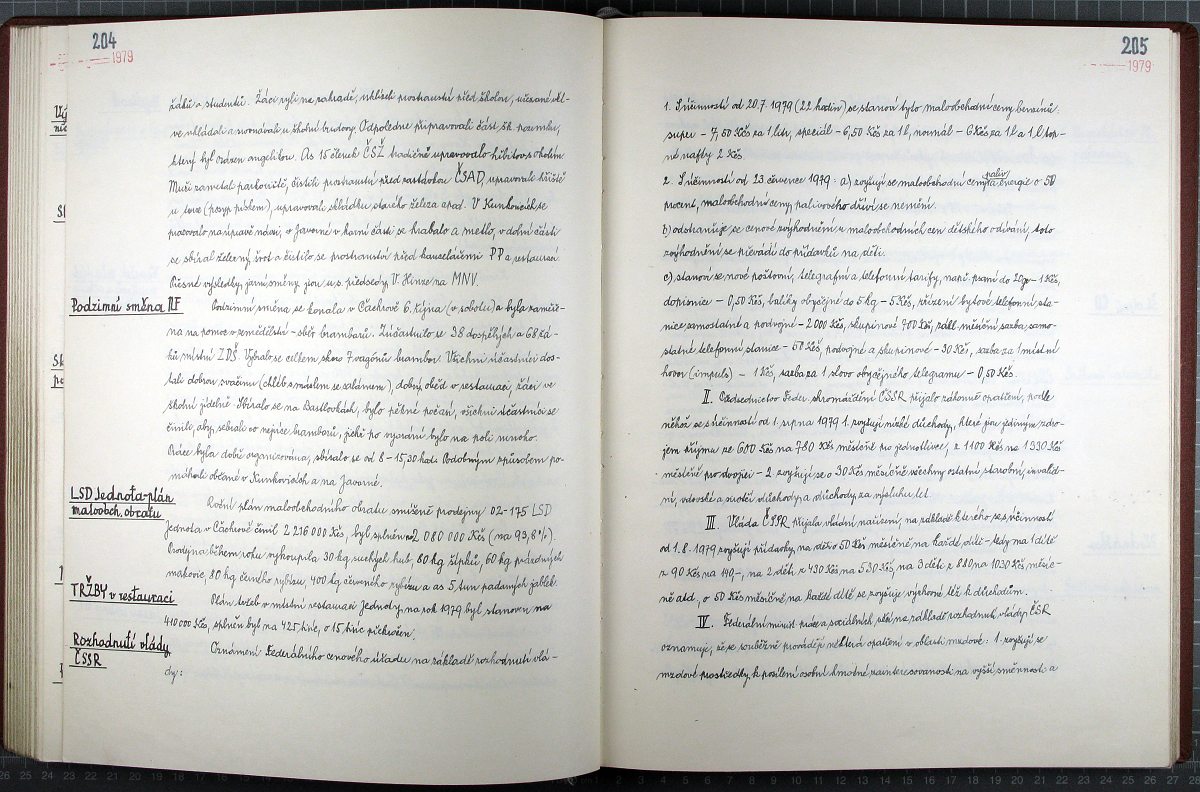 204
1979
žáků a studentů. Žáci ryli na zahradě, uklízeli prostranství před školou, uřezané vět-
ve ukládali a srovnávali u školní budovy. Odpoledne připravovali část šk. pozemku,
který byl osázen angelikou. As 15 členek ČSŽ tradičně upravovalo hřbitov s okolím
Muži zametali parkoviště, čistili prostranství před zastávkou ČSAD, upravovali hřiště
u tvrze (posyp pískem), upravovali skládku starého železa apod. V Kunkovicích se
pracovalo na úpravě návsi, v Javorné v horní části se hrabalo a metlo, v dolní části
se sbíral železný šrot a čistilo se prostranství před kanceláří PP a restaurací
Přesné výsledky jarní směny jsou u s. předsedy V. Hinze na MNV.
Podzimní směna NF
Podzimní směna se konala v Čachrově 6. října (v sobotu) a byla zaměře-
na na pomoc v zemědělství – sběr brambor. Zúčastnilo se 38 dospělých a 68 žá-
ků místní ZDŠ. Vybralo se celkem skoro 7 vagónů brambor. Všichni účastníci dos-
tali dobrou svačinu (chléb s máslem se salámem), dobrý oběd v restauraci, žáci ve
školní jídelně. Sbíralo se na Bastlovkách, bylo pěkné počasí, všichni účastníci se
činili, aby sebrali co nejvíce brambor, jichž po vyorání bylo na poli mnoho.
Práce byla dobře organizována, sbíralo se od 8 – 15,30 hod. Podobným způsobem po-
máhali občané v Kunkovicích a na Javorné.
LSD Jednota-plán
maloobch. obratu
Roční plán maloobchodního obratu smíšené prodejny 02-175 LSD
Jednota v Čachrově činil 2 216 000 Kčs, byl splněn 2 080 000 Kčs (na 93,8 %).
Prodejna během roku vykoupila 30 kg suchých hub, 60 kg šípků, 60 kg prázdných
makovic, 80 kg černého rybízu, 400 kg červeného rybízu a as 5 tun padaných jablek.
TRŽBY v restauraci
Plán tržeb v místní restauraci Jednoty na rok 1979 byl stanoven na
410 000 Kčs, splněn byl na 425 tisíc, o 15 tisíc překročen.
Rozhodnutí vlády
ČSSR
Oznámení Federálního cenového úřadu na základě rozhodnutí vlá-
dy:
205
1979
1. S účinností od 20. 7. 1979 (22 hodin) se stanoví tyto maloobchodní ceny benzinů:
super – 7,50 Kčs za 1 litr, speciál – 6,50 Kčs za 1 l, normál – 6 Kčs za 1 l a 1 l top-
né nafty 2 Kčs.
2. S účinností od 23 července 1979: a) zvyšují se maloobchodní ceny paliv a energie o 50
procent, maloobchodní ceny palivového dříví se nemění.
b) odstraňuje se cenové zvýhodnění z maloobchodních cen dětského odívání, toto
zvýhodnění se převádí do přídavků na děti.
c) stanoví se nové poštovní, telegrafní a telefonní tarify, např. psaní do 20 g – 1 Kčs,
dopisnice – 0,50 Kčs, balíky obyčejné do 5 kg – 5 Kčs, zřízení bytové telefonní sta-
nice samostatné a podvojné – 2 000 Kčs, skupinové 700 Kčs, zákl. měsíční sazba samo-
statné telefonní stanice – 50 Kčs, podvojné a skupinové – 30 Kčs, sazba za 1 místní
hovor (impuls) – 1 Kčs, sazba za 1 slovo obyčejného telegramu – 0,50 Kčs.
II. Předsednictvo Feder. shromáždění ČSSR přijalo zákonné opatření, podle
něhož se s účinností od 1. srpna 1979 1. zvyšují nízké důchody, které jsou jediným zdro-
jem příjmu ze 600 Kčs na 780 Kčs měsíčně pro jednotlivce, z 1100 Kčs na 1330 Kčs
měsíčně pro dvojici – 2. zvyšují se o 30 Kčs měsíčně všechny ostatní starobní, invalid-
ní, vdovské a sirotčí důchody a důchody za výsluhu let.
III. Vláda ČSSR přijala vládní nařízení, na základě kterého se s účinností
od 1. 8. 1979 zvyšují přídavky na děti o 50 Kčs měsíčně na každé dítě – tedy na 1 dítě
z 90 Kčs na 140,-, na 2 děti z 430 Kčs na 530 Kčs, na 3 děti z 880 na 1030 Kčs měsíč-
ně atd., o 50 Kčs měsíčně na každé dítě se zvyšuje výchovné též k důchodům.
IV. Federální minist. práce a sociálních věcí na základě rozhodnutí vlády ČSR
oznamuje, že se souběžně provádějí některá opatření v oblasti mzdové: 1. zvyšují se
mzdové prostředky k posílení osobní hmotné zainteresovanosti na vyšší směnnosti a